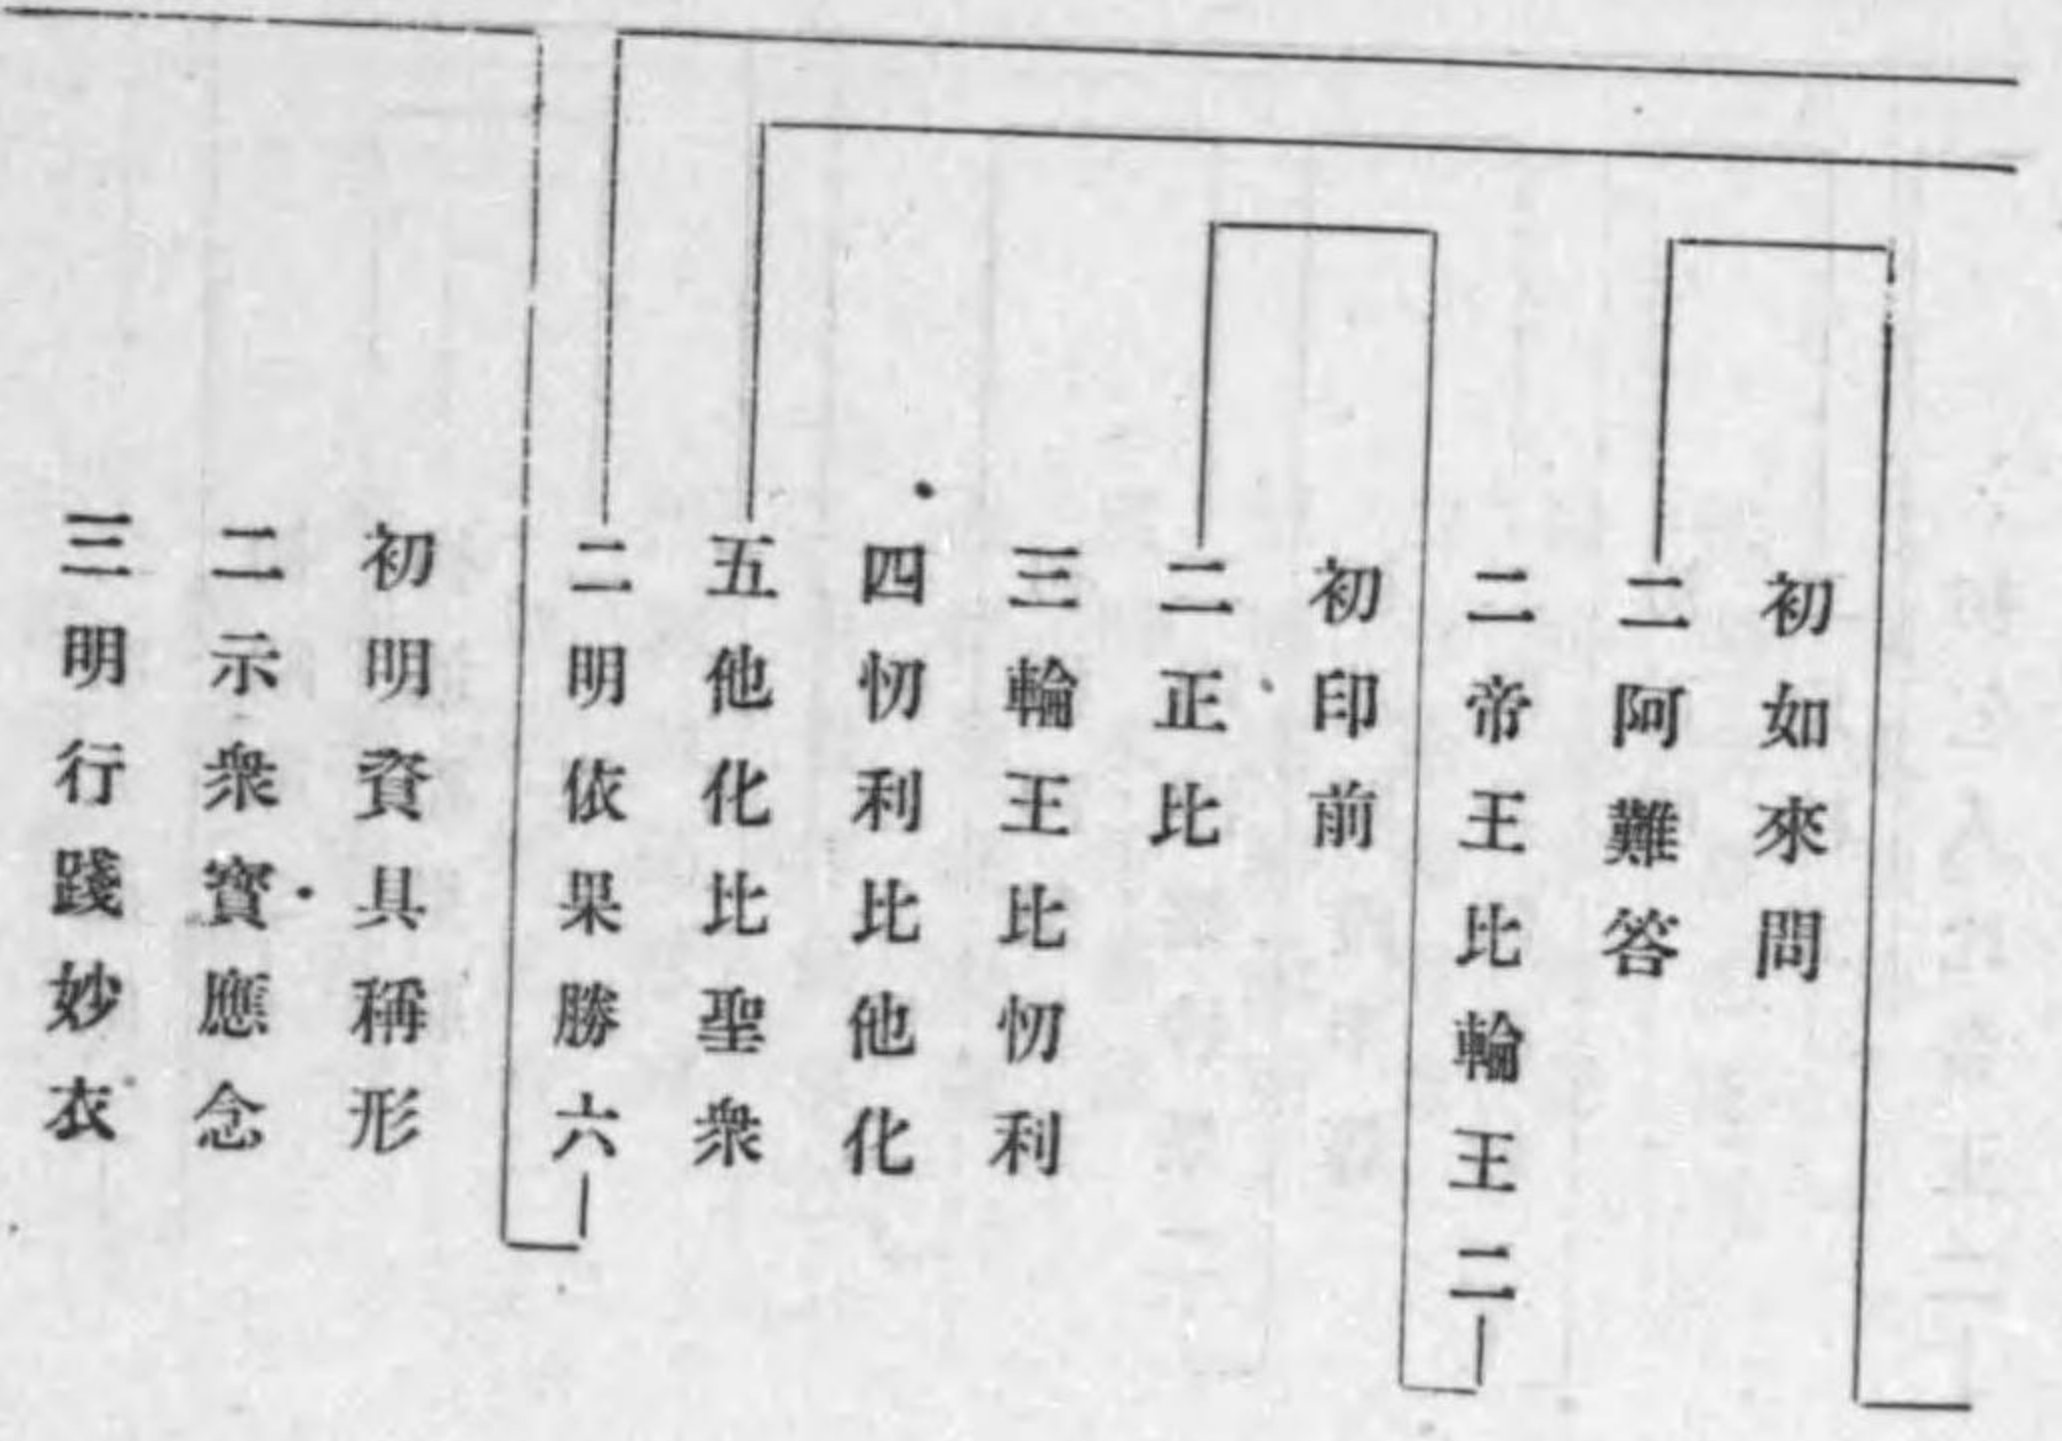 初如來問
二阿難答
二帝王比輪王二
初印前
二正比
三輪王比忉利
四忉利比他化
五他化比聖衆
二明依果勝六
初明資具稱形
二示衆寳應念
三明行踐妙衣